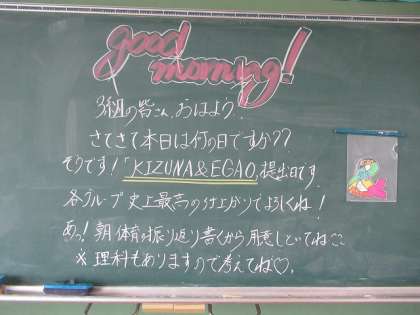 good
morning!
3組の皆さん、おはよう!
さてさて本日は何の日ですか??
そうです!「KIZUNA&EGAO」提出日です
各グループ史上最高の仕上がりでよろしくね!
あっ!朝、体育の振り返り書くから用意しといてね
※理科もありますので考えてね♡。